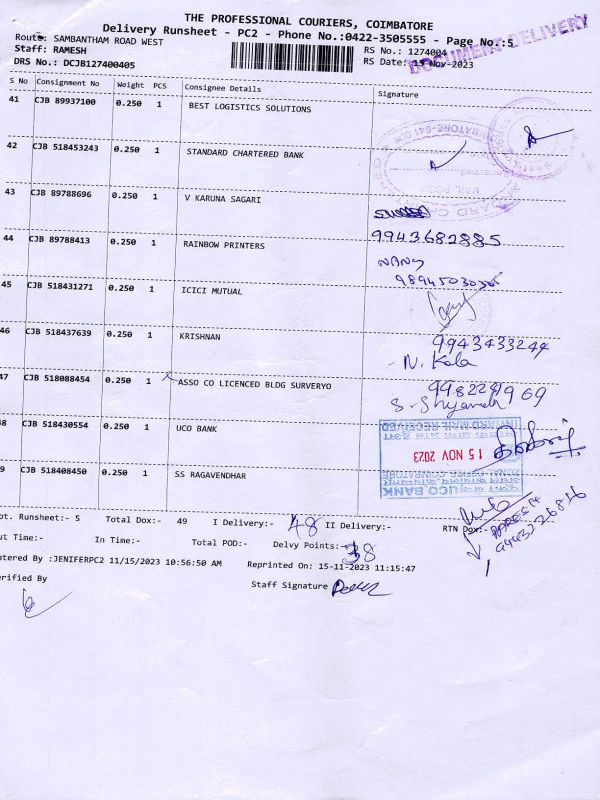 THE PROFESSIONAL COURIERS, COIMBATORE
Delivery Runsheet - PC2 - Phone No.:0422-3505555 - Page No.:5
DOCUMENT DELIVERY
Route: SAMBANTHAM ROAD WEST
RS No.: 1274004
Staff: RAMESH
RS Date: 15-Nov-2023
DRS No.: DCJB127400405
S No Consignment No Weight PCS Consignee Details Signature
41 CJB 89937100 0.250 1 BEST LOGISTICS SOLUTIONS
42 CJB 518453243 0.250 1 STANDARD CHARTERED BANK
MAIL ROOM
43 CJB 89788696 0.250 1 V KARUNA SAGARI
9943682885
44 CJB 89788413 0.250 1 RAINBOW PRINTERS
45 CJB 518431271 0.250 1 ICICI MUTUAL
46 CJB 518437639 0.250 1 KRISHNAN
9943433244
N. Kala
47 CJB 518088454 0.250 1 ASSO CO LICENCED BLDG SURVERYO
S. Shyamala
48 CJB 518430554 0.250 1 UCO BANK
INWARD MAIL RECEIVED
15 NOV 2023
ZONAL OFFICE, COIMBATORE
यूको बैंक UCO BANK
49 CJB 518408450 0.250 1 SS RAGAVENDHAR
ot. Runsheet:- 5 Total Dox:- 49 I Delivery:- 48 II Delivery:- RTN Dox:-
ut Time:- In Time:- Total POD:- Delvy Points:- 38
ntered By :JENIFERPC2 11/15/2023 10:56:50 AM Reprinted On: 15-11-2023 11:15:47
erified By Staff Signature